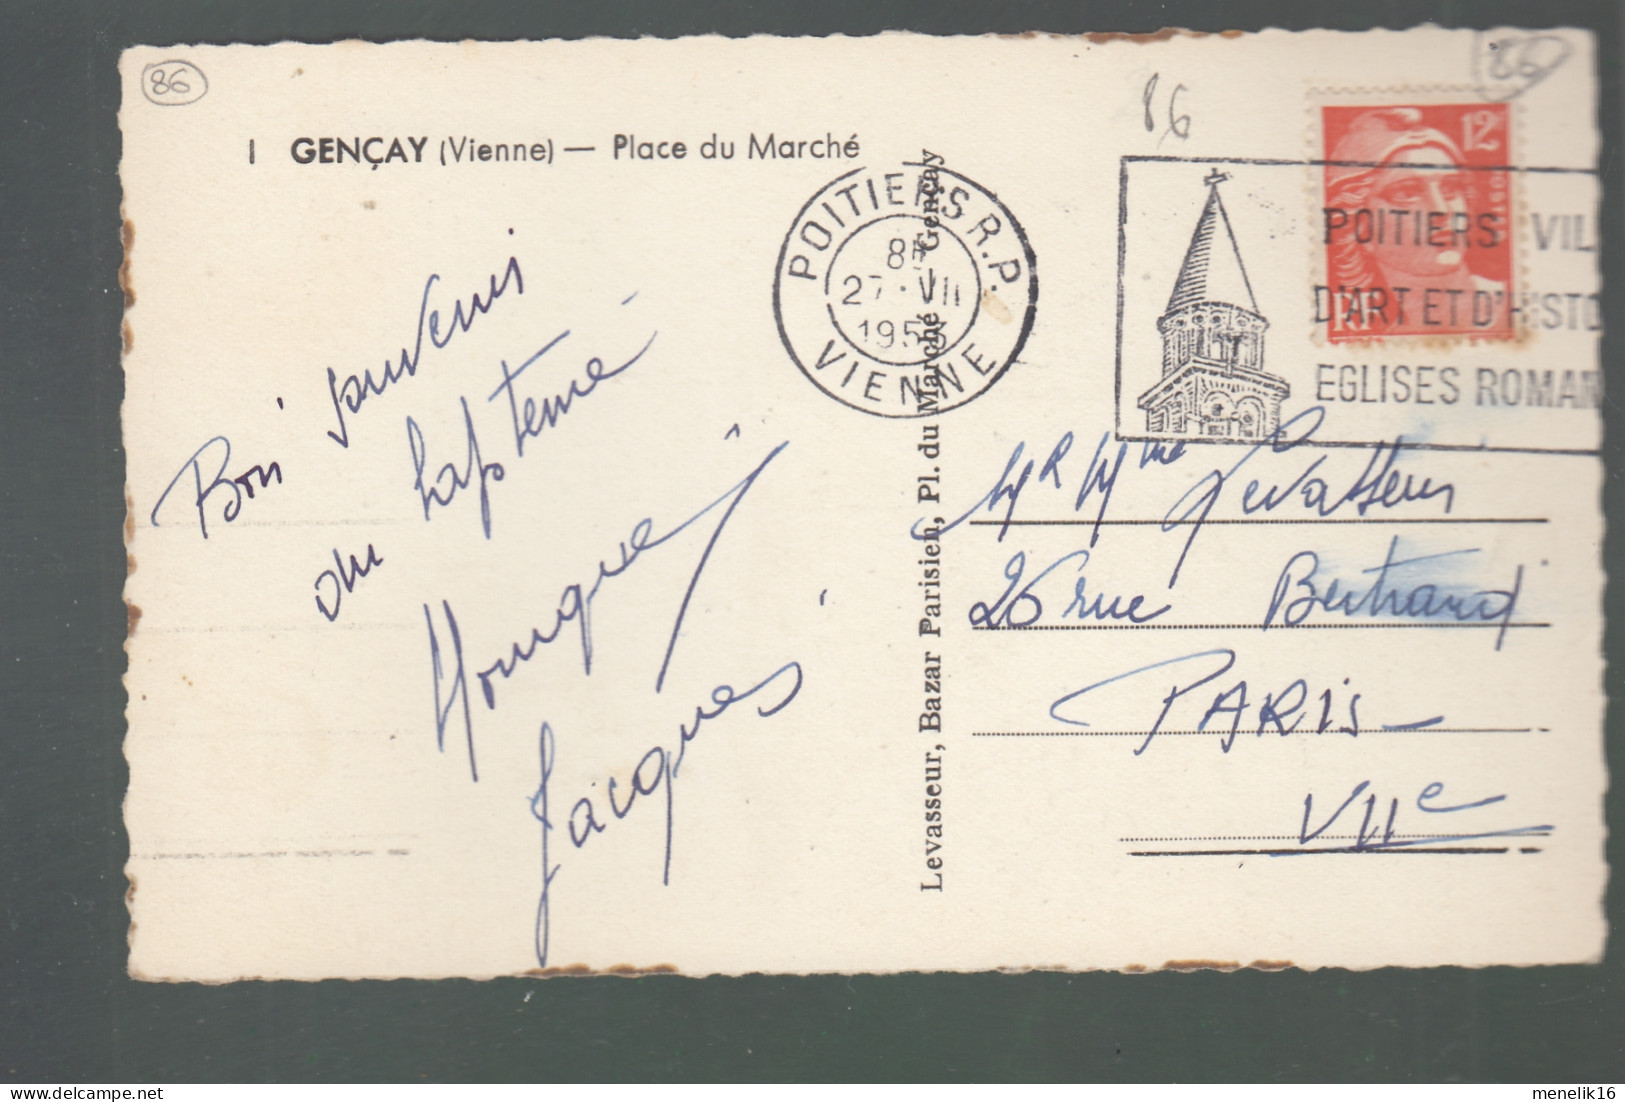 86
86
86
1 GENÇAY (Vienne) — Place du Marché
12
RF
POITIERS R.P.
27 · VII
VIENNE
POITIERS VIL
D'ART ET D'HISTO
EGLISES ROMAN
Bon souvenir
du baptême
Monique
Jacques
Levasseur, Bazar Parisien, Pl. du Marché - Gençay
Mr Mme Levasseur
26 rue Bertrand
PARIS —
VIIe
menelik16